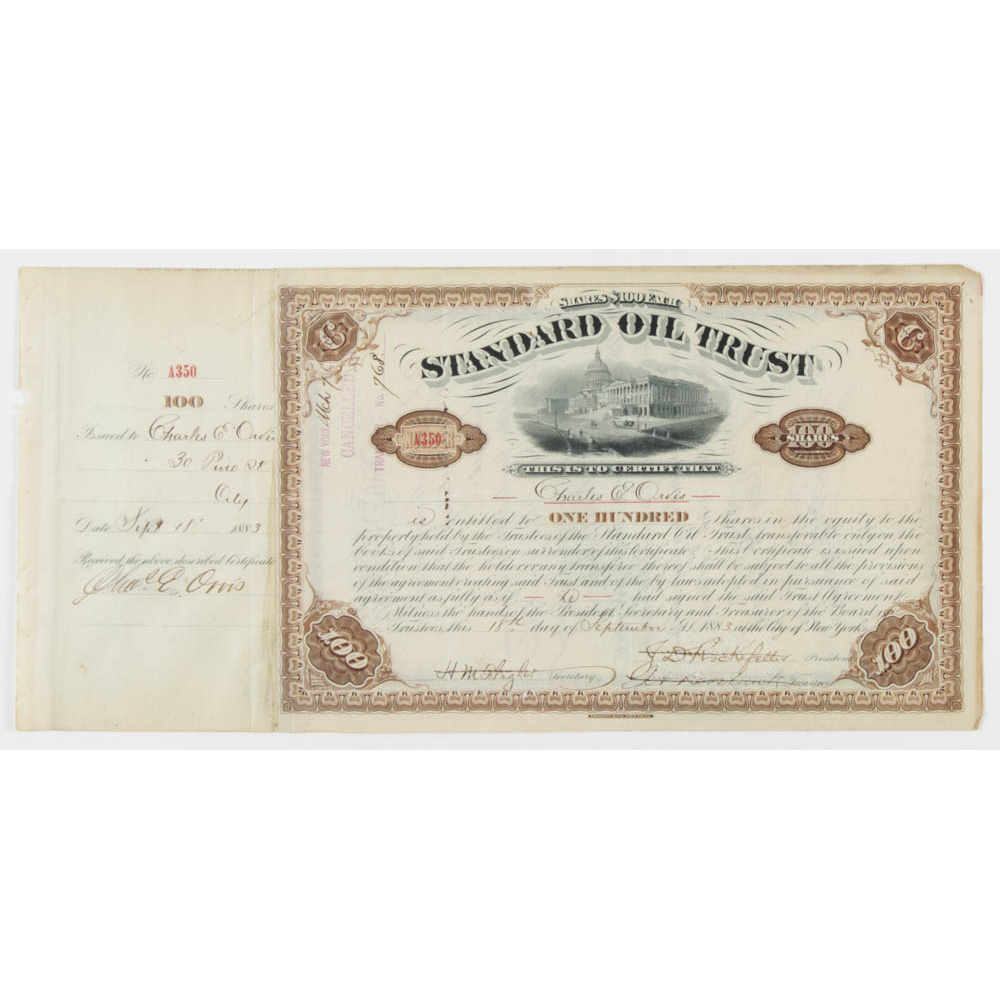 No. A350
100 Shares
Issued to Charles E Orvis
30 Pine St
City
Date Sept 18 1883
Received the above described Certificate
Chas. E. Orvis
SHARES $100 EACH
STANDARD OIL TRUST
NEW YORK Mch 7
CANCELLED
No. 768
A350
100
SHARES
THIS IS TO CERTIFY THAT
Charles E Orvis
is entitled to ONE HUNDRED Shares in the equity to the
property held by the Trustees of the Standard Oil Trust, transferable only on the
books of said Trustees on surrender of this Certificate. This Certificate is issued upon
condition that the holder or any transferee thereof shall be subject to all the provisions
of the agreement creating said Trust and of the by laws adopted in pursuance of said
agreement as fully as if he had signed the said Trust Agreement.
Witness the hands of the President, Secretary and Treasurer of the Board of
Trustees, this 18th day of September A.D. 1883 at the City of New York.
100
100
J. D. Rockefeller President
H M Flagler Secretary
Treasurer